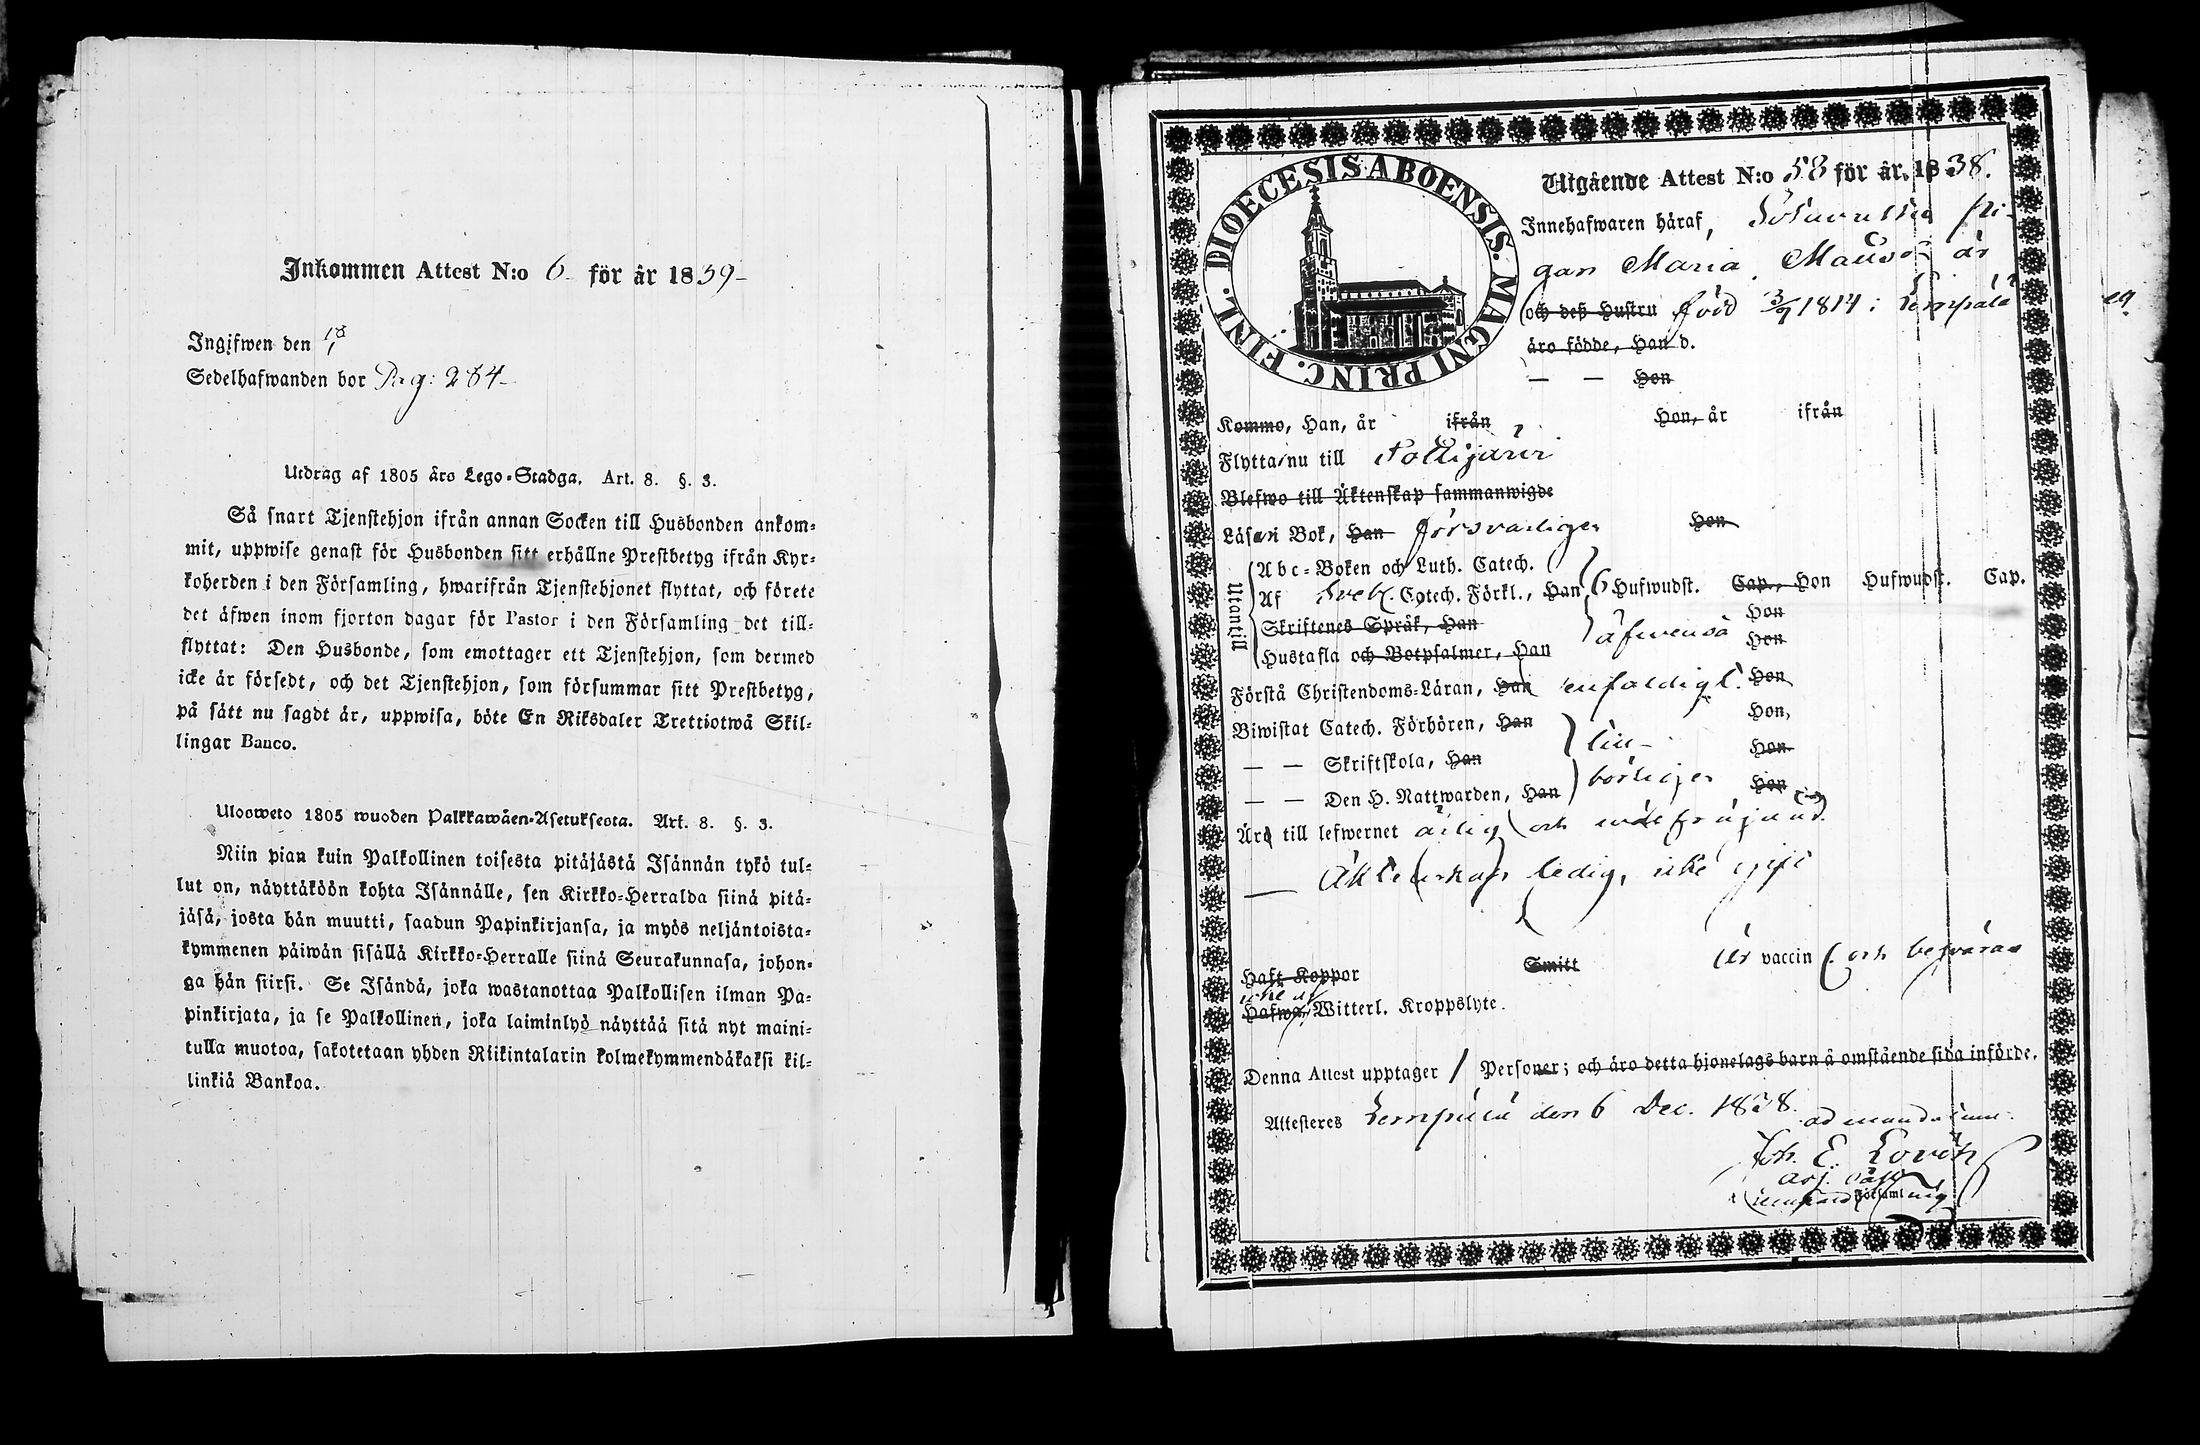 Inkommen Attest N:o 6 för år 1839
Ingifwen den 18/1
Sedelhafwanden bor Pag: 284
Utdrag af 1805 års Lego-Stadga. Art. 8. §. 3.
Så snart Tjenstehjon ifrån annan Socken till Husbonden ankom-
mit, uppwise genast för Husbonden sitt erhållne Prestbetyg ifrån Kyr-
koherden i den Församling, hwarifrån Tjenstehjonet flyttat, och förete
det äfwen inom fjorton dagar för Pastor i den Församling det till-
flyttat: Den Husbonde, som emottager ett Tjenstehjon, som dermed
icke är försedt, och det Tjenstehjon, som försummar sitt Prestbetyg,
på sätt nu sagdt är, uppwisa, böte En Riksdaler Trettiotwå Skil-
lingar Banco.
Ulosweto 1805 wuoden Palkkawäen-Asetuksesta. Art. 8. §. 3.
Niin pian kuin Palkollinen toisesta pitäjästä Isännän tykö tul-
lut on, näyttäköön kohta Isännälle, sen Kirkko-Herralda siinä pitä-
jäsä, josta hän muutti, saadun Papinkirjansa, ja myös neljäntoista-
kymmenen päiwän sisällä Kirkko-Herralle siinä Seurakunnasa, johon-
ga hän siirsi. Se Isändä, joka wastanottaa Palkollisen ilman Pa-
pinkirjata, ja se Palkollinen, joka laiminlyö näyttää sitä nyt maini-
tulla muotoa, sakotetaan yhden Riikintalarin kolmekymmendäkaksi kil-
linkiä Bankoa.
DIOECESIS ABOENSIS. MAGNI PRINC. FINL.
Utgående Attest N:o 58 för år 1838.
Innehafwaren häraf, pi-
gan Maria är
och deß Hustru född 3/9 1814 i Lempälä
äro födde, Han d.
— — Hon
Kommo, Han, år ifrån Hon, år ifrån
Flytta nu till Tottijärvi
Blefwo till Äktenskap sammanwigde
Läsa i Bok, Han försvarligen Hon
Utantill
Abc-Boken och Luth. Catech.
Af Sveb. Catech. Förkl., Han 6 Hufwudst. Cap., Hon Hufwudst. Cap.
Skriftenes Språk, Han Hon
Hustafla och Botpsalmer, Han äfwenså Hon
Förstå Christendoms-Läran, Han enfaldigt. Hon
Biwistat Catech. Förhören, Han Hon,
— — Skriftskola, Han Hon
— — Den H. Nattwarden, Han börligen Hon
Äro till lefwernet ärlig och wälfräjdad.
— Äktenskaps ledig, icke gift
Haft Koppor Smitt är vaccin. och besväras
icke af
Hafwa Witterl. Kroppslyte.
Denna Attest upptager 1 Personer; och äro detta hjonelags barn å omstående sida införde.
Attesteres Lempälä den 6 Dec. 1838.
ad mandatum
Joh. E.
Församling